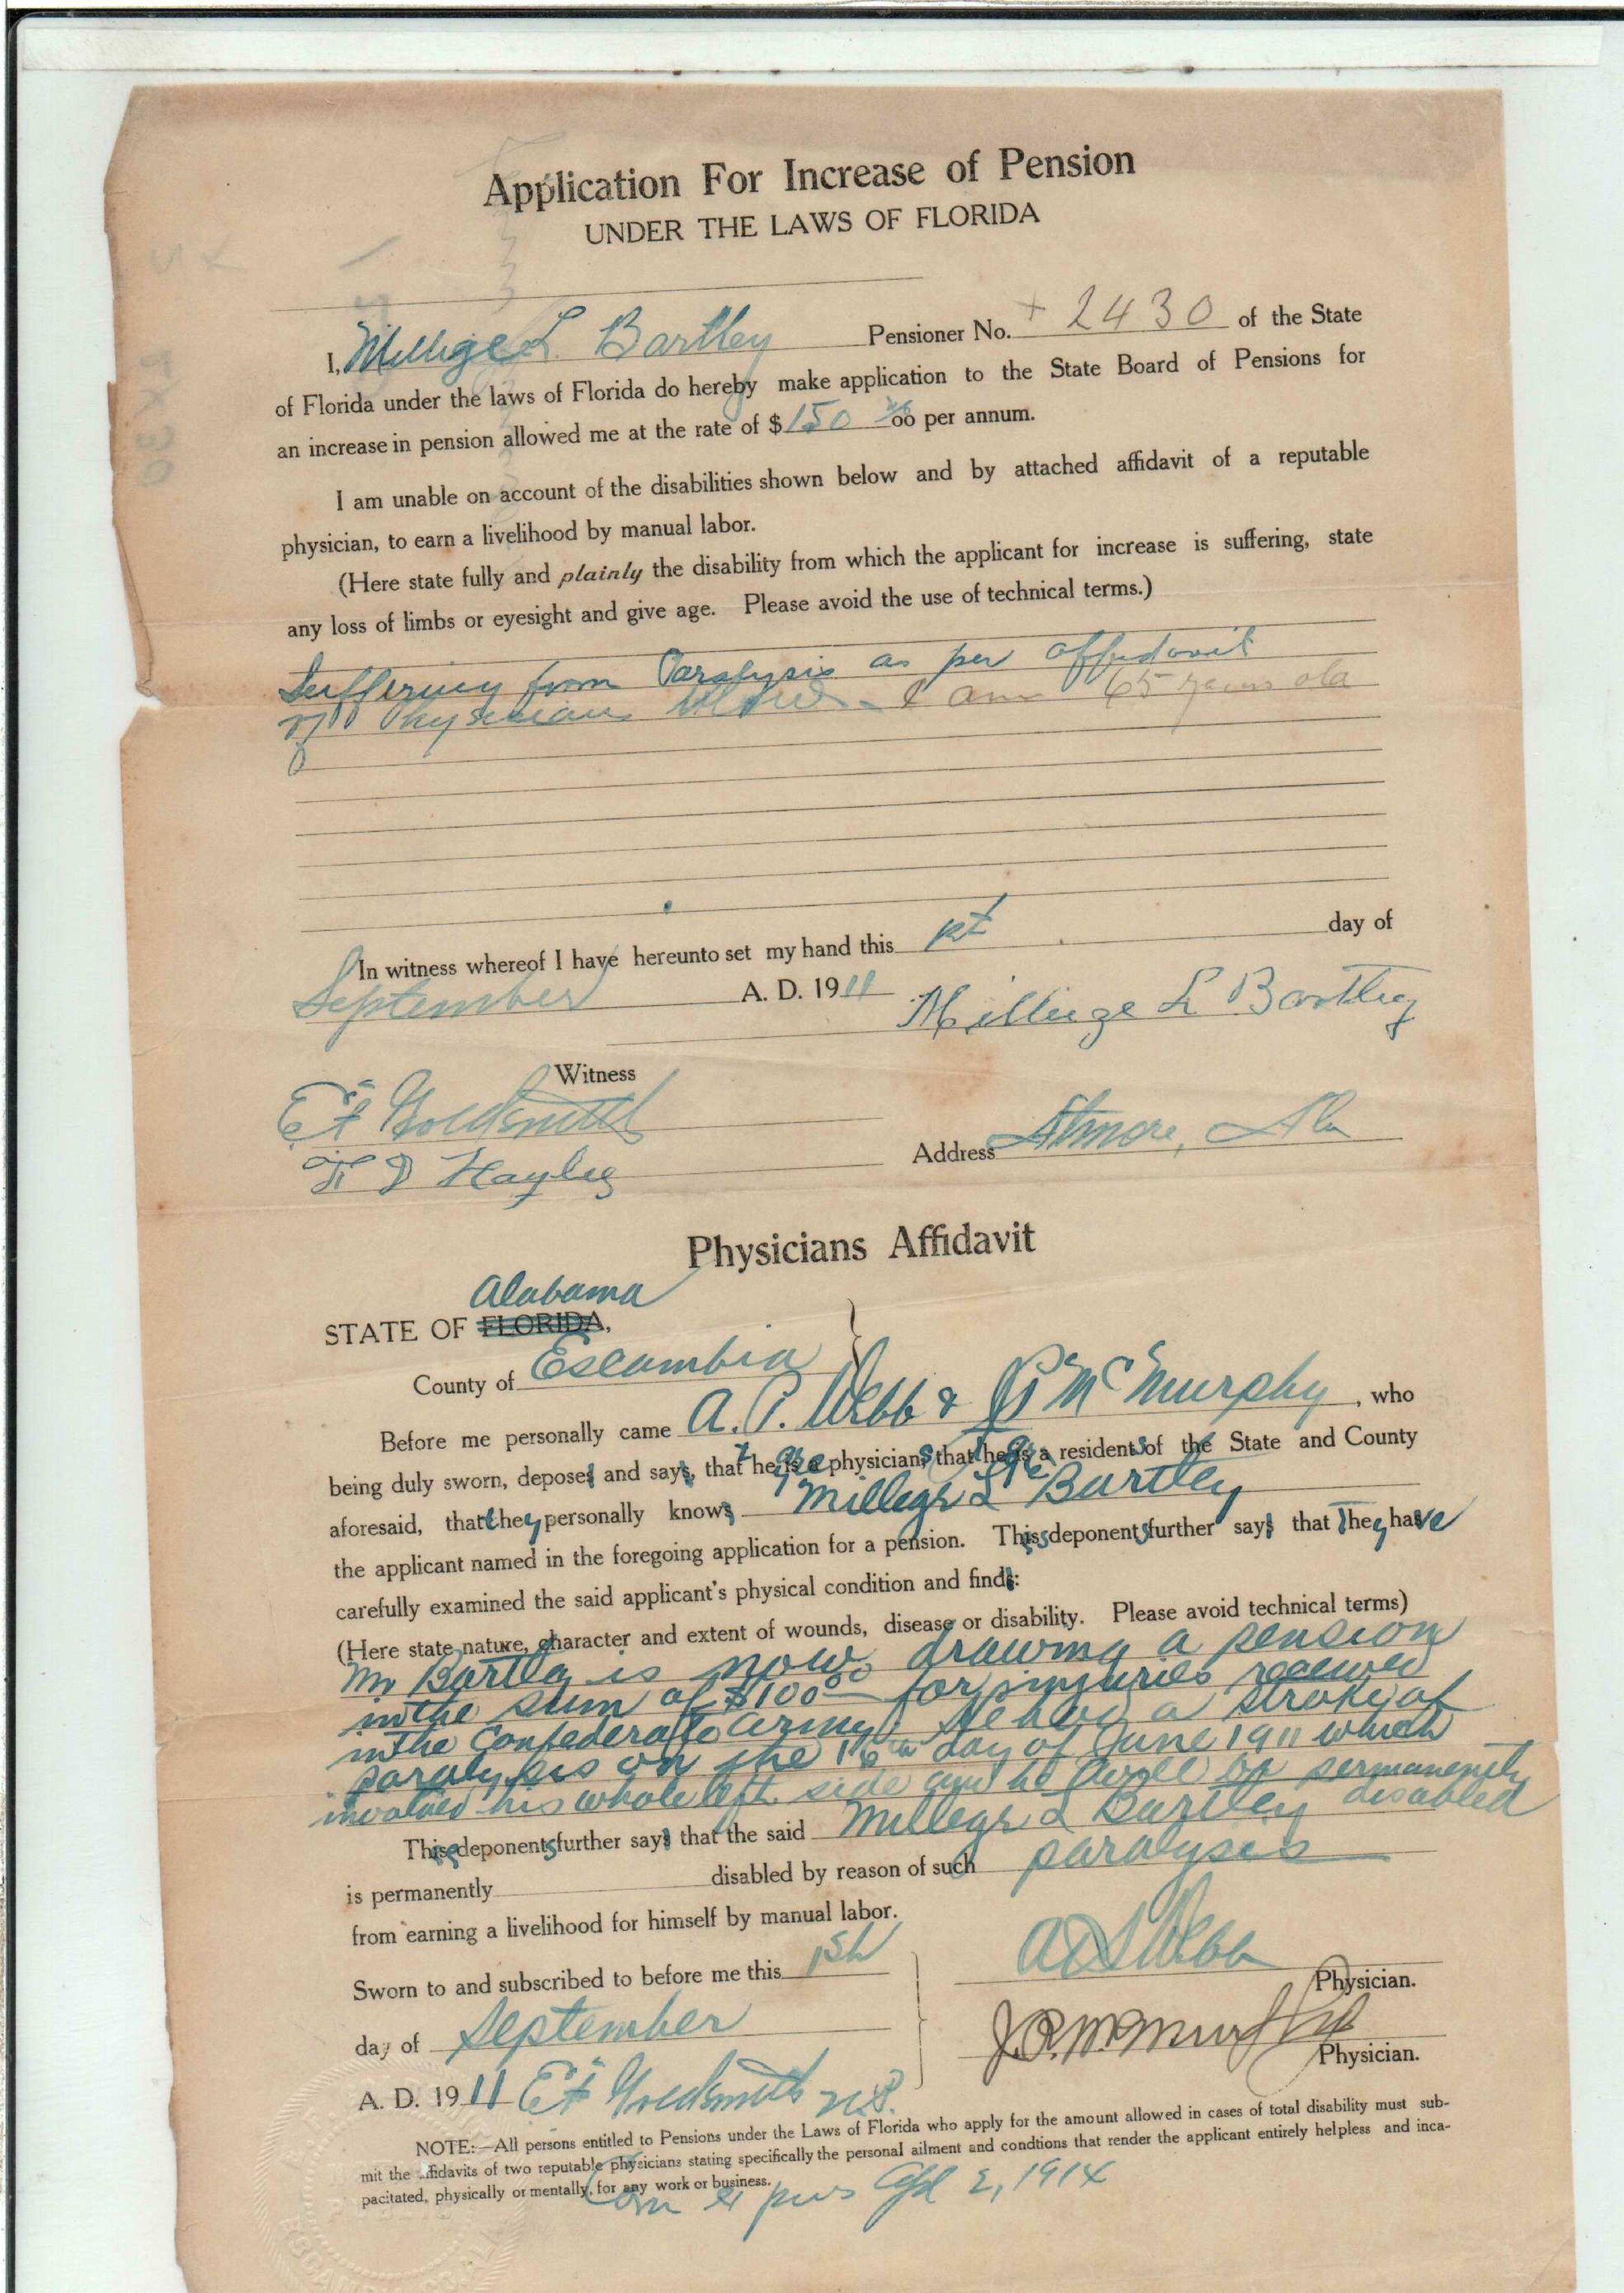 Application For Increase of Pension
UNDER THE LAWS OF FLORIDA
I, Millege L. Bartley Pensioner No. + 2430 of the State
of Florida under the laws of Florida do hereby make application to the State Board of Pensions for
an increase in pension allowed me at the rate of $150 00 per annum.
I am unable on account of the disabilities shown below and by attached affidavit of a reputable
physician, to earn a livelihood by manual labor.
(Here state fully and plainly the disability from which the applicant for increase is suffering, state
any loss of limbs or eyesight and give age. Please avoid the use of technical terms.)
Suffering from Paralysis as per affidavit
of Physician I am 65 years old
In witness whereof I have hereunto set my hand this 1st day of
September A. D. 1911 Millige L Bartley
Witness
E F Goldsmith
Address Atmore, Ala
Physicians Affidavit
Alabama
STATE OF FLORIDA,
County of Escambia
Before me personally came A. P. Webb & J P McMurphy, who
being duly sworn, deposes and says, that they are physicians that they are residents of the State and County
aforesaid, that they personally know Millege L Bartley
the applicant named in the foregoing application for a pension. These deponents further say that They have
carefully examined the said applicant's physical condition and find:
(Here state nature, character and extent of wounds, disease or disability. Please avoid technical terms)
Mr Bartley is now drawing a pension
in the sum of $100 00 for injuries received
in the Confederate army. He had a stroke of
paralysis on the 16th day of June 1911 which
involved his whole left side and he will be permanently
disabled
These deponents further say that the said Millege L Bartley
is permanently disabled by reason of such paralysis
from earning a livelihood for himself by manual labor.
Sworn to and subscribed to before me this 1st
A P Webb Physician.
day of September
J. P. McMurphy Physician.
A. D. 1911 E F Goldsmith N.P.
NOTE:—All persons entitled to Pensions under the Laws of Florida who apply for the amount allowed in cases of total disability must sub-
mit the affidavits of two reputable physicians stating specifically the personal ailment and condtions that render the applicant entirely helpless and inca-
pacitated, physically or mentally, for any work or business.
Com expires Apl 2, 1914